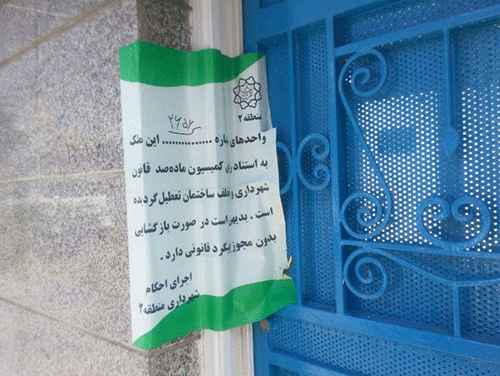 منطقه ۲
واحدهای ............... این ملک
به استناد رای کمیسیون ماده صد قانون
شهرداری و تخلف ساختمان تعطیل گردیده
است . بدیهی است در صورت بازگشایی
بدون مجوز پیگرد قانونی دارد .
اجرای احکام
شهرداری منطقه ۲